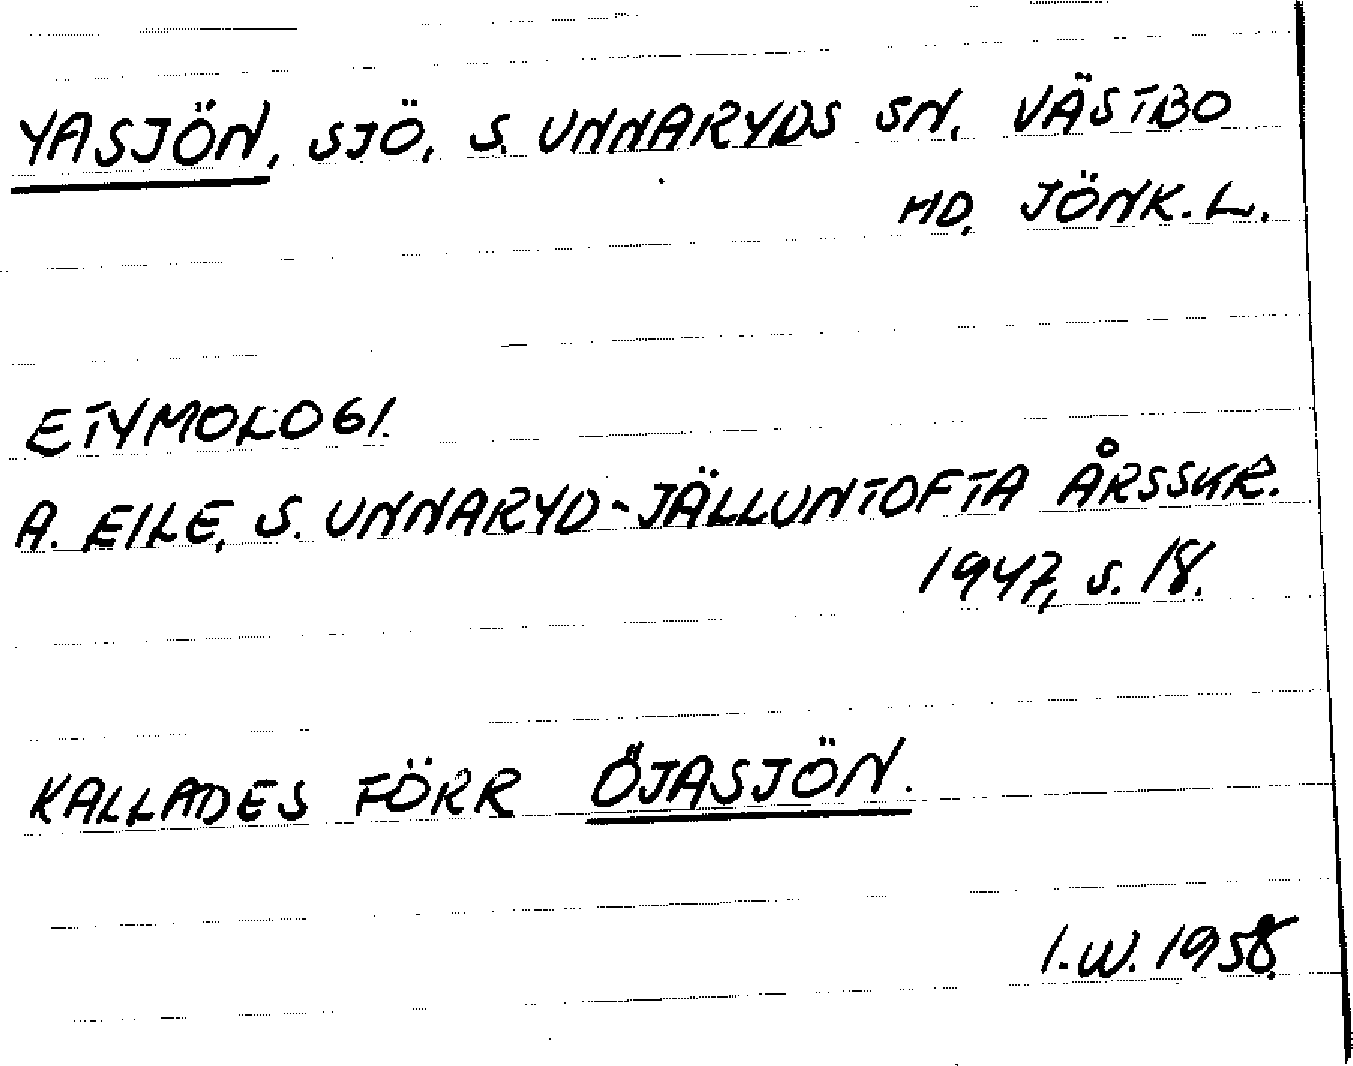 YASJÖN, SJÖ, S. UNNARYDS SN. VÄSTBO
HD. JÖNK. L.
ETYMOLOGI.
A. EILE, S. UNNARYD-JÄLLUNTOFTA ÅRSSKR.
1947, S. 18.
KALLADES FÖRR ÖJASJÖN.
I.W. 1958.